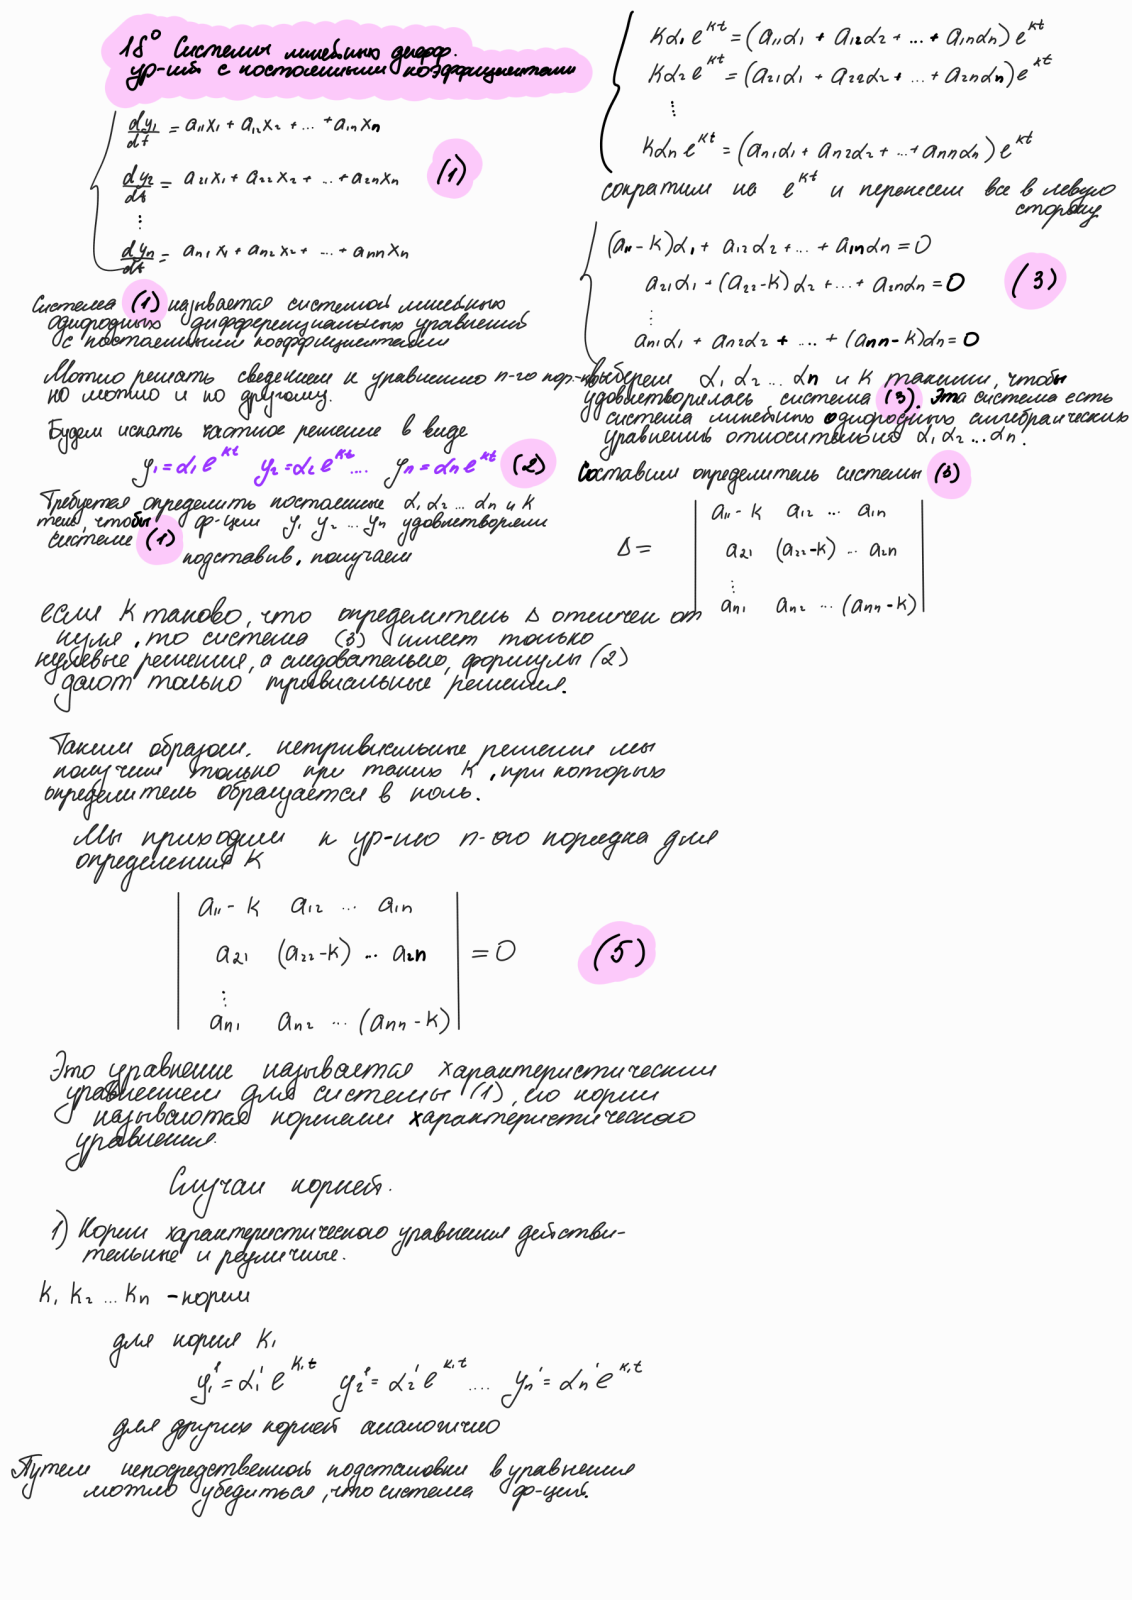 18° Системы линейных дифф.
ур-ий с постоянными коэффициентами
dy₁/dt = a₁₁x₁ + a₁₂x₂ + ... + a₁ₙxₙ
dy₂/dt = a₂₁x₁ + a₂₂x₂ + ... + a₂ₙxₙ (1)
⋮
dyₙ/dt = aₙ₁x₁ + aₙ₂x₂ + ... + aₙₙxₙ
Система (1) называется системой линейных
однородных дифференциальных уравнений
с постоянными коэффициентами
Можно решать сведением к уравнению n-го пор-ка
но можно и по другому.
Будем искать частное решение в виде
y₁ = α₁e^kt y₂ = α₂e^kt .... yₙ = αₙe^kt (2)
Требуется определить постоянные α₁ α₂ ... αₙ и k
так, чтобы ф-ции y₁ y₂ ... yₙ удовлетворяли
системе (1)
подставив, получаем
kα₁e^kt = (a₁₁α₁ + a₁₂α₂ + ... + a₁ₙαₙ)e^kt
kα₂e^kt = (a₂₁α₁ + a₂₂α₂ + ... + a₂ₙαₙ)e^kt
⋮
kαₙe^kt = (aₙ₁α₁ + aₙ₂α₂ + ... + aₙₙαₙ)e^kt
сократим на e^kt и перенесем все в левую
сторону
(a₁₁ - k)α₁ + a₁₂α₂ + ... + a₁ₙαₙ = 0
a₂₁α₁ + (a₂₂ - k)α₂ + ... + a₂ₙαₙ = 0 (3)
⋮
aₙ₁α₁ + aₙ₂α₂ + ... + (aₙₙ - k)αₙ = 0
выберем α₁ α₂ ... αₙ и k такими, чтобы
удовлетворялась система (3). Эта система есть
система линейных однородных алгебраических
уравнений относительно α₁ α₂ ... αₙ.
Составим определитель системы (3)
a₁₁ - k a₁₂ ... a₁ₙ
Δ = a₂₁ (a₂₂ - k) ... a₂ₙ
⋮
aₙ₁ aₙ₂ ... (aₙₙ - k)
если k таково, что определитель Δ отличен от
нуля, то система (3) имеет только
нулевые решения, а следовательно, формулы (2)
дают только тривиальные решения.
Таким образом, нетривиальные решения мы
получим только при таких k, при которых
определитель обращается в ноль.
Мы приходим к ур-ию n-ого порядка для
определения k
a₁₁ - k a₁₂ ... a₁ₙ
a₂₁ (a₂₂ - k) ... a₂ₙ = 0 (5)
⋮
aₙ₁ aₙ₂ ... (aₙₙ - k)
Это уравнение называется характеристическим
уравнением для системы (1), его корни
называются корнями характеристического
уравнения.
Случаи корней.
1) Корни характеристического уравнения действи-
тельные и различные.
k₁ k₂ ... kₙ - корни
для корня k₁
y₁¹ = α₁¹e^k₁t y₂¹ = α₂¹e^k₁t .... yₙ¹ = αₙ¹e^k₁t
для других корней аналогично
Путем непосредственной подстановки в уравнения
можно убедиться, что система ф-ций.